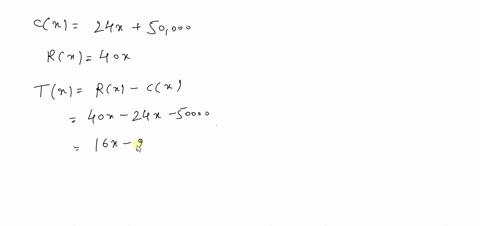 C(x) = 24x + 50,000
R(x) = 40x
T(x) = R(x) - C(x)
= 40x - 24x - 50000
= 16x -